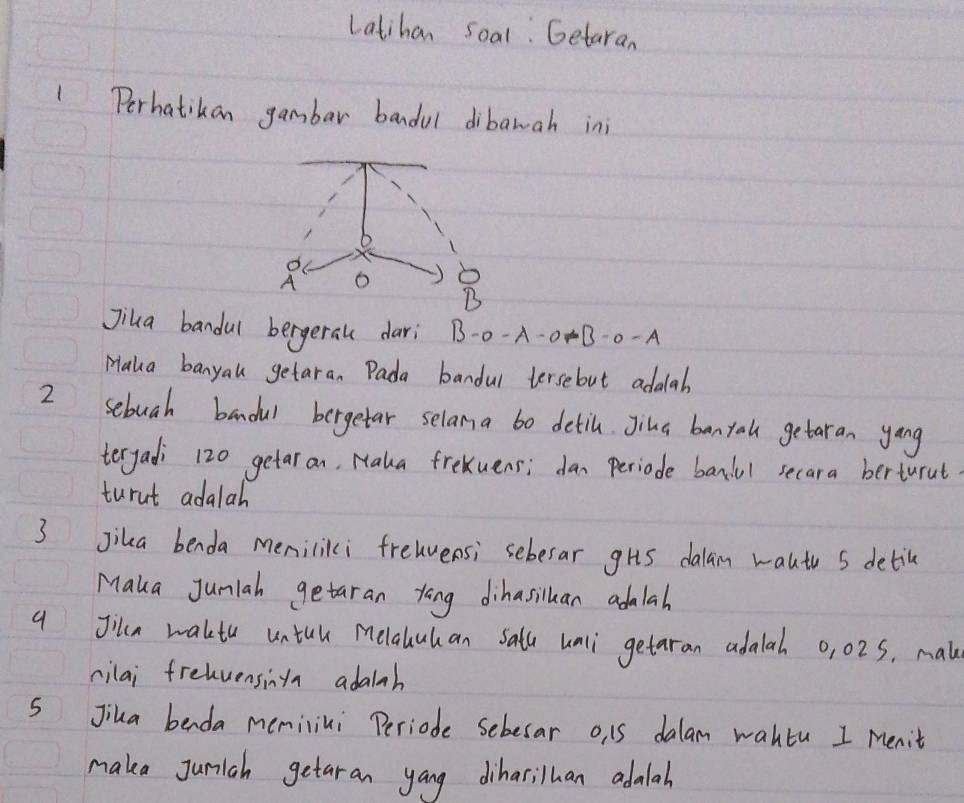 Latihan soal : Getaran
1 Perhatikan gambar bandul dibawah ini
A O B
Jika bandul bergerak dari B-O-A-O-B-O-A
Maka banyak getaran Pada bandul tersebut adalah
2 sebuah bandul bergetar selama 60 detik Jika banyak getaran yang
terjadi 120 getaran, Maka frekuensi dan Periode bandul secara berturut-
turut adalah
3 Jika benda Memiliki frekuensi sebesar 9Hs dalam waktu 5 detik
Maka Jumlah getaran yang dihasilkan adalah
4 Jika waktu untuk Melakukan satu kali getaran adalah 0,02 S, mak
nilai frekuensinya adalah
5 Jika benda memiliki Periode sebesar 0,1S dalam waktu 1 Menit
maka Jumlah getaran yang diharilkan adalah